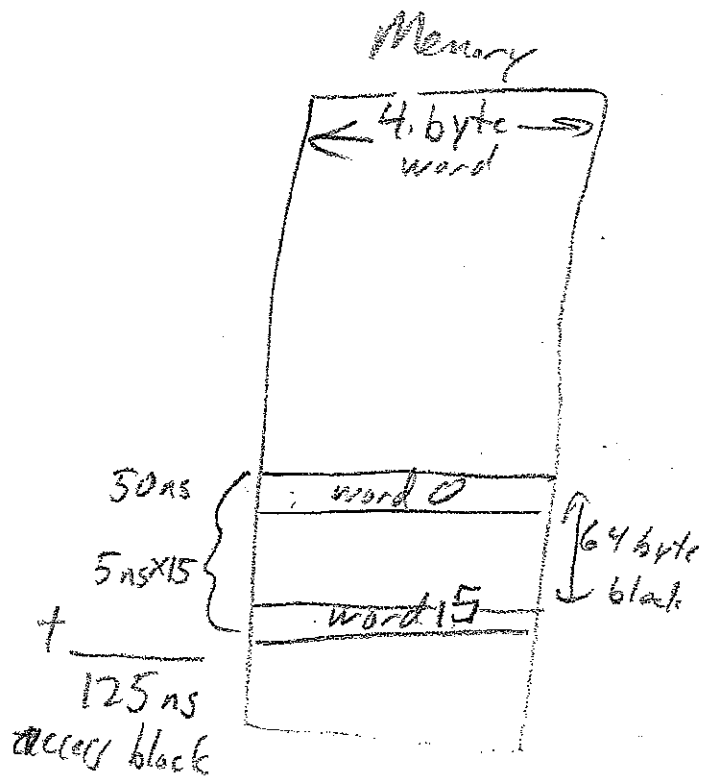 Memory
4 byte
word
50 ns
word 0
5 ns×15
64 byte
block
word 15
+
125 ns
access block